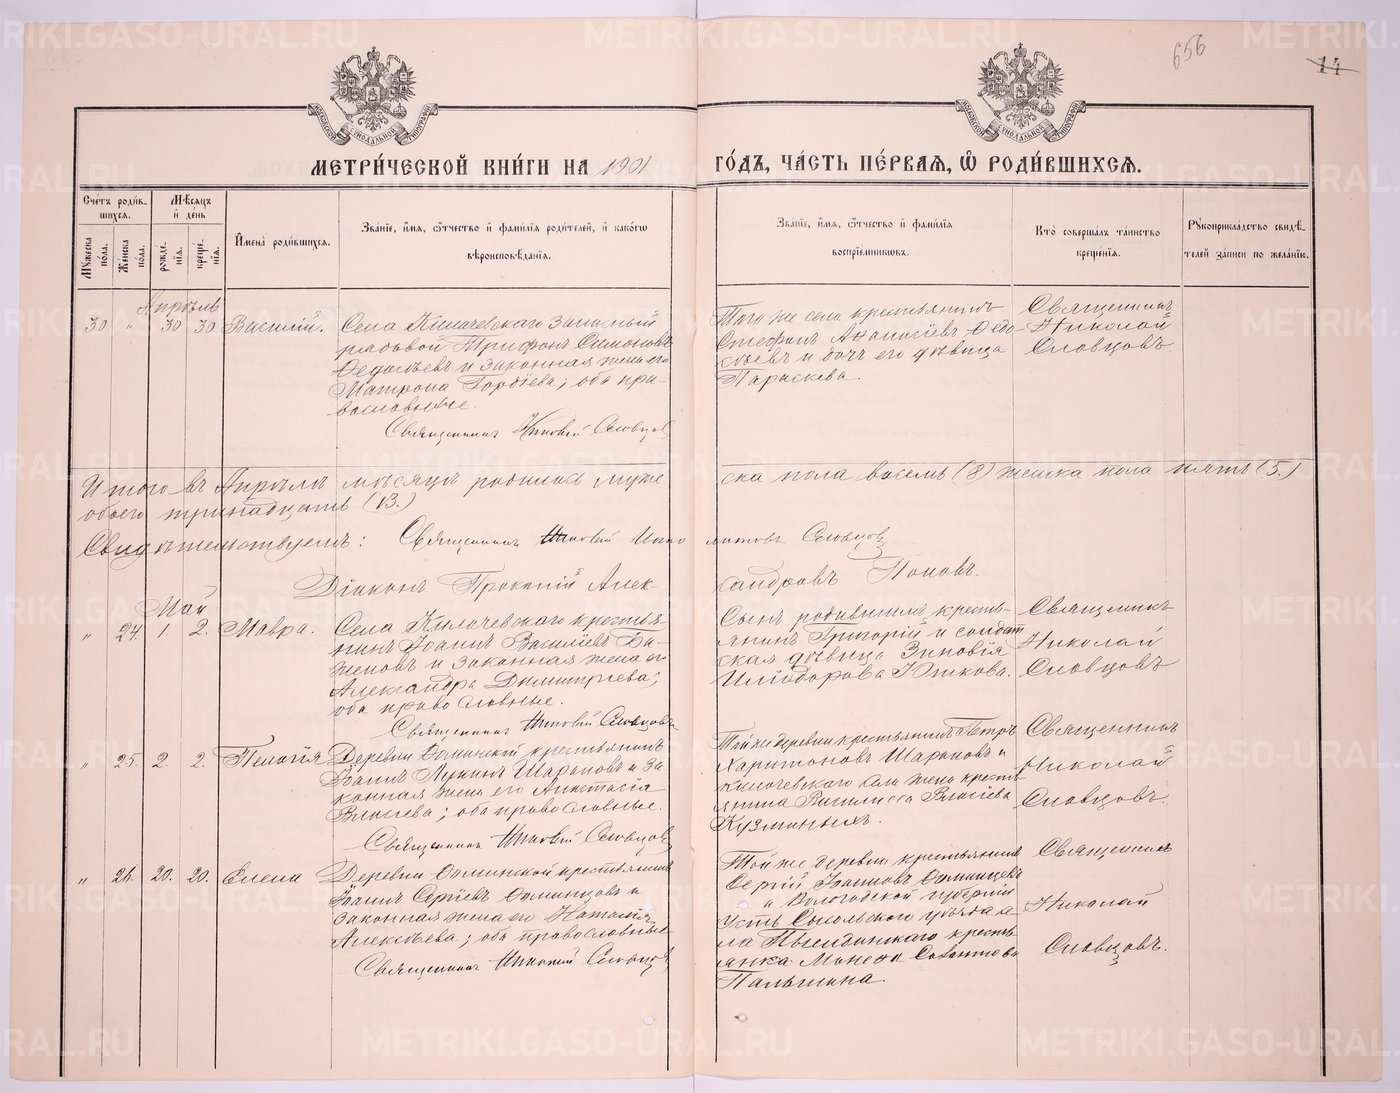 656
14
МЕТРИ́ЧЕСКОЙ КНИ́ГИ НА 1901 ГО́ДЪ, ЧА́СТЬ ПЕ́РВАѦ, Ѡ҆ РОДИ́ВШИХСѦ.
Сче́тъ роди́в-
шихсѧ.
Мѣ́сѧцъ
и҆ де́нь
Мꙋ́жеска по́ла.
Же́нска по́ла.
рожде́-
нїѧ.
креще́-
нїѧ.
И҆мена̀ роди́вшихсѧ.
Зва́нїе, и҆́мѧ, ѻ҆́тчество и҆ фами́лїѧ роди́телей, и҆ како́гѡ
вѣроисповѣ́данїѧ.
Зва́нїе, и҆́мѧ, ѻ҆́тчество и҆ фами́лїѧ
воспрїе́мниковъ.
Кто̀ соверша́лъ та́инство
креще́нїѧ.
Рꙋкоприкла́дство свидѣ́-
телей за́писи по жела́нїю.
Апрѣль
30 " 30 30 Василій.
Села Килачевскаго запасный
рядовой Трифонъ Симоновъ
Федосѣевъ и законная жена его
Матрона Гордіева; оба пра-
вославные.
Священникъ Николай Словцовъ
Того же села крестьянинъ
Стефанъ Аѳанасіевъ Федо-
сѣевъ и дочь его дѣвица
Параскева.
Священникъ
Николай
Словцовъ
Итого въ Апрѣлѣ мѣсяцѣ родилось муже
ска пола восемь (8) женска пола пять (5.)
обоего тринадцать (13.)
Свидѣтельствуемъ: Священникъ Николай Иппо литовъ Словцовъ
Діаконъ Прокопій Алек
сандровъ Поповъ.
Май
" 24. 1. 2. Мавра.
Села Килачевскаго крестья-
нинъ Іоаннъ Василіевъ Ба-
женовъ и законная жена его
Александра Димитріева;
оба православные.
Священникъ Николай Словцовъ
Сынъ родившихъ кресть-
янинъ Григорій и солдат
ская дѣвица Зиновія
Иліодорова Юшкова.
Священникъ
Николай
Словцовъ
" 25. 2. 2. Пелагія
Деревни Фоминской крестьянинъ
Іоаннъ Лукинъ Шараповъ и за
конная жена его Анастасія
Власіева; оба православные.
Священникъ Николай Словцовъ
Той же деревни крестьянинъ Петръ
Харитоновъ Шараповъ и
Килачевскаго села жена кресть-
янина Василисса Власіева
Кузминыхъ.
Священникъ
Николай
Словцовъ.
" 26. 20. 20. Елена
Деревни Фоминской крестьянинъ
Іоаннъ Сергіевъ Фоминцовъ и
законная жена его Наталія
Алексѣева; оба православные
Священникъ Николай Словцовъ
Той же деревни крестьянинъ
Сергій Іоанновъ Фоминцевъ
и Вологодской губерніи
Усть Сысольскаго уѣзда се-
ла Пыелдинскаго кресть
янка Савватіева
Пальшина.
Священникъ
Николай
Словцовъ.
METRIKI.GASO-URAL.RU